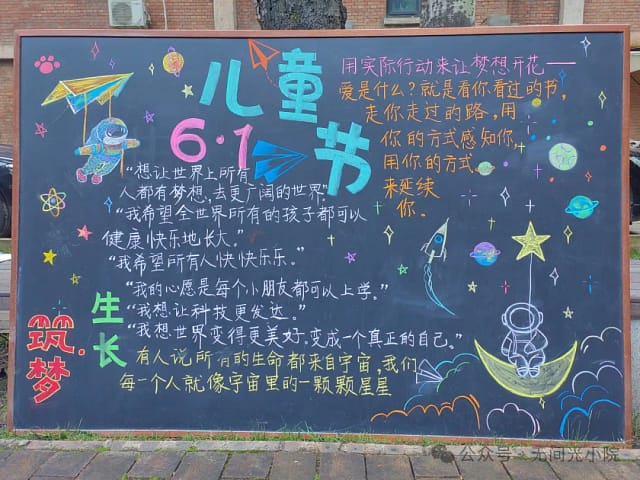 儿童节
6·1
用实际行动来让梦想开花——
爱是什么？就是看你看过的书，
走你走过的路，用
你的方式感知你，
用你的方式
来延续
你。
“想让世界上所有
人都有梦想，去更广阔的世界。”
“我希望全世界所有的孩子都可以
健康快乐地长大。”
“我希望所有人快快乐乐。”
“我的心愿是每个小朋友都可以上学。”
“我想让科技更发达。”
“我想世界变得更美好，变成一个真正的自己。”
生长
筑梦
有人说所有的生命都来自宇宙，我们
每一个人就像宇宙里的一颗颗星星
公众号·无间光小院